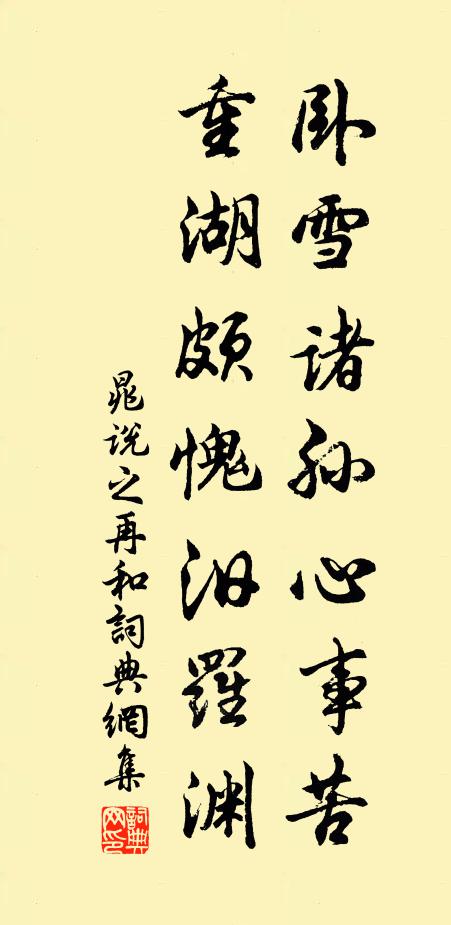 卧雪诸孙心事苦
重湖颇愧汨羅渊
晁说之再和詞典網集
詞典網印